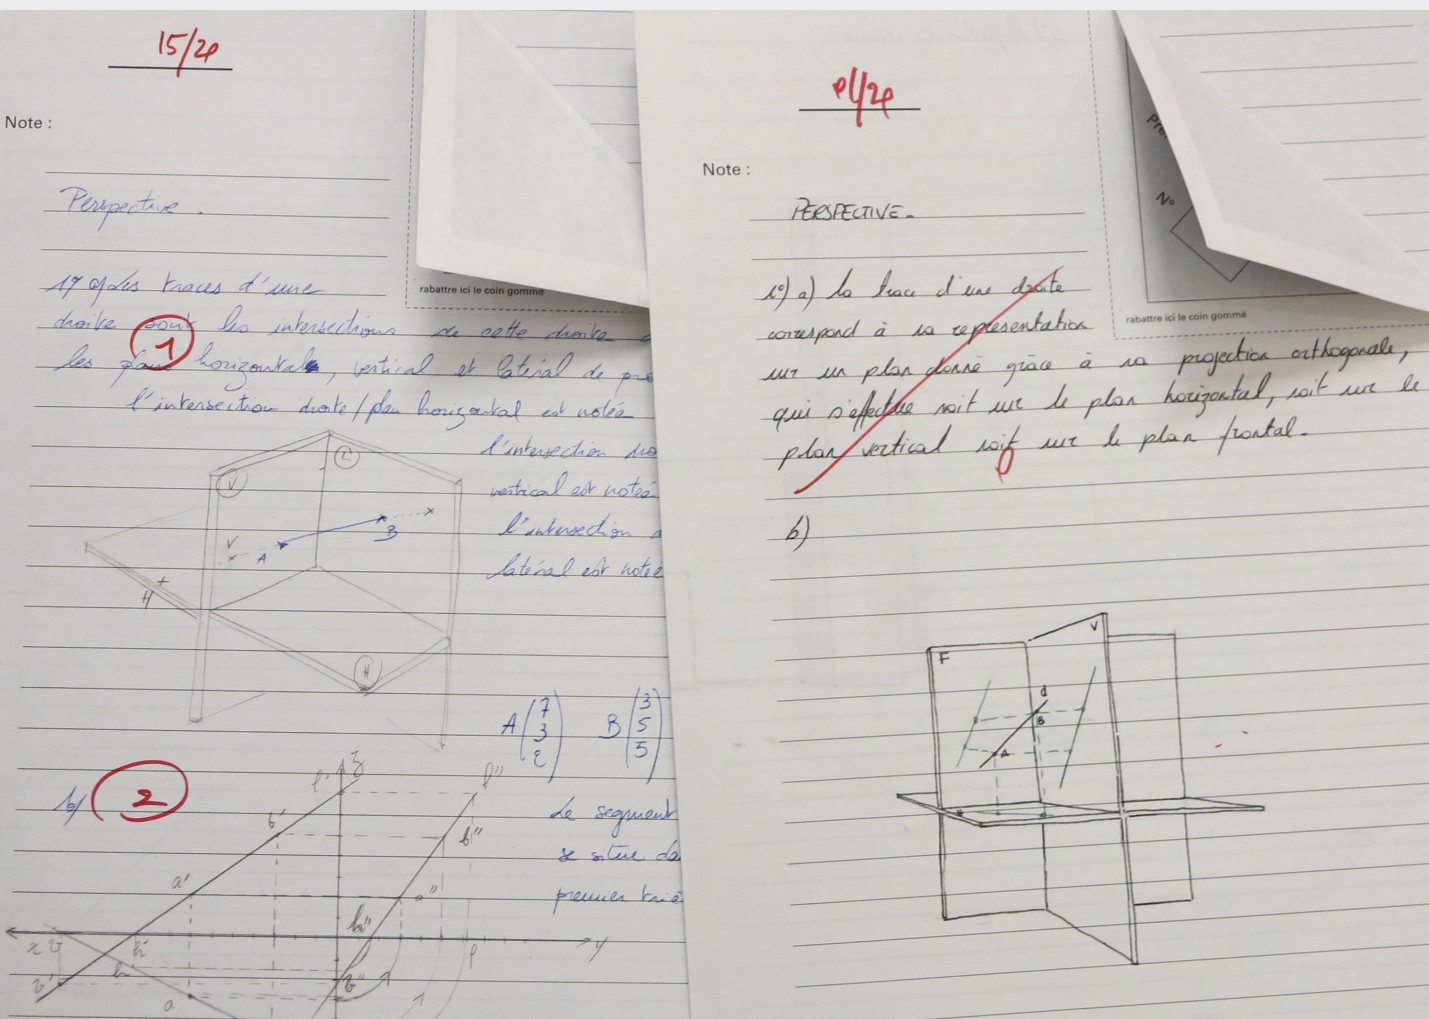 15/20
Note :
Perspective.
1°) a) Les traces d'une
droite sont les intersections de cette droite
1
les plans horizontal, vertical et latéral de
l'intersection droite/plan horizontal est notée
l'intersection
vertical est notée
l'intersection
latéral est notée
V
L
V
A
B
H
H
A (7 3 2) B (3 5 5)
b)
2
Le segment
se situe
premier
l' z l''
b' b''
a' a''
h' h'' y
x v h p
v' v''
a
rabattre ici le coin gommé
/20
Note :
N°
PERSPECTIVE.
1°) a) La trace d'une droite
correspond à sa représentation
sur un plan donné grâce à sa projection orthogonale,
qui s'effectue soit sur le plan horizontal, soit sur le
plan vertical soit sur le plan frontal.
b)
F
V
d
B
A
rabattre ici le coin gommé